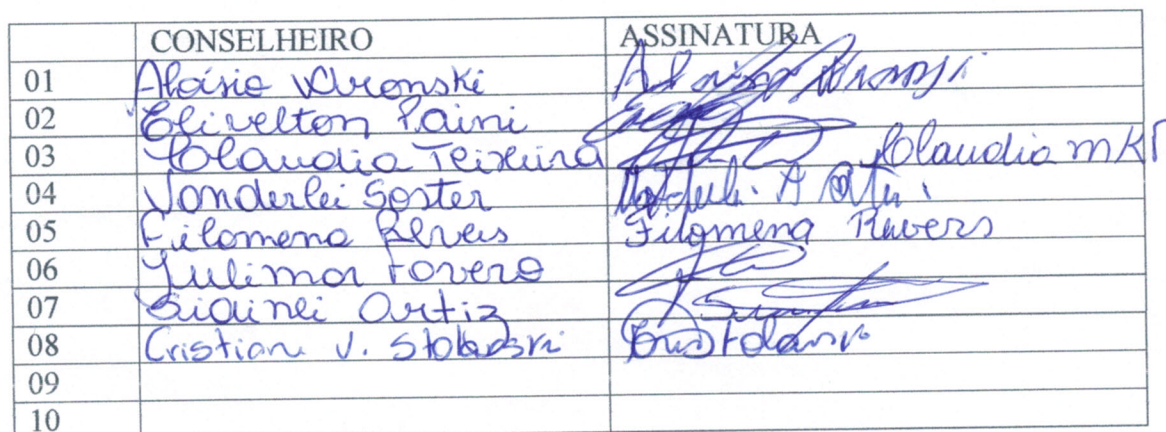 CONSELHEIRO ASSINATURA
01 Aloisio Wronski
02 Elivelton Paini
03 Claudia Teixeira Claudia mKT
04 Vanderlei Soster
05 Filomena Revers Filomena Revers
06 Julimar Fovero
07 Sidinei Ortiz
08 Cristiane V. Stolarski
09
10